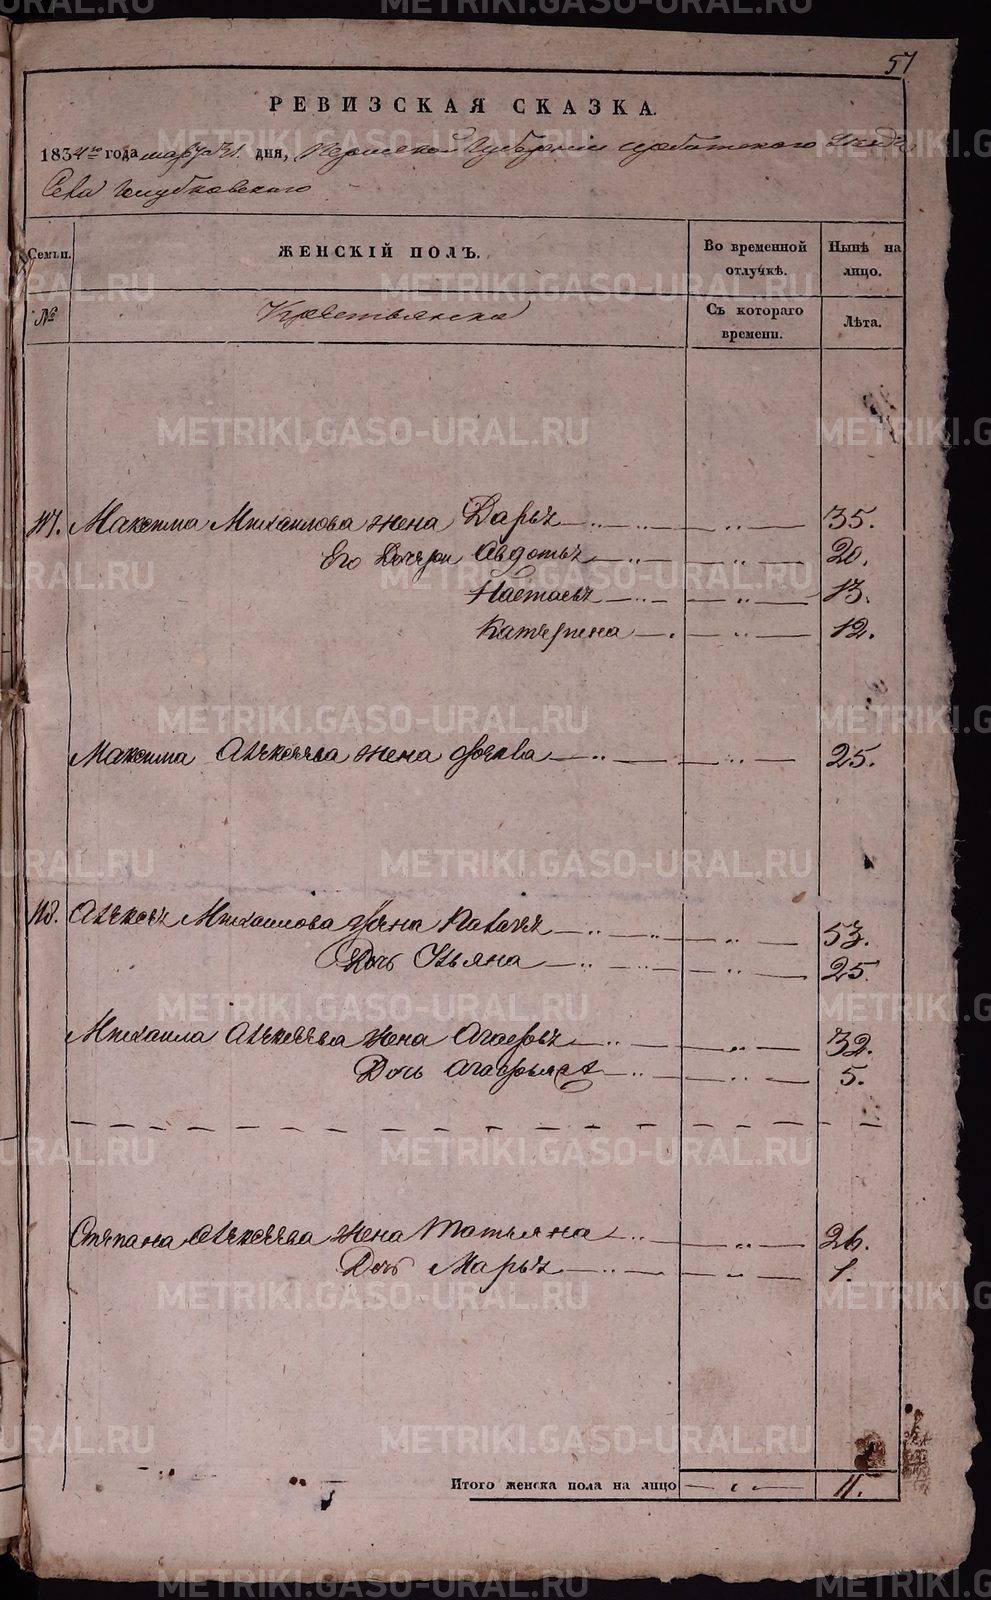 51
РЕВИЗСКАЯ СКАЗКА.
1834го года марта 31. дня, Пермской Губернии Ирбитского Уезда
Села Голубковского
Семьи. ЖЕНСКІЙ ПОЛЪ. Во временной отлучкѣ. Нынѣ на лицо.
№ Крестьянска Съ котораго времени. Лѣта.
Максима Михаилова жена Дарья 35.
Его Дочери Авдотья 20.
Настасья 13.
Катерина 12.
Максима Алексеева жена Фекла 25.
Михаилова жена 53.
Дочь Ульяна 25
Михаила Алексеева жена Агафья 32.
Дочь 5.
Степана Алексеева жена Татьяна 26.
Дочь Марья 1.
Итого женска пола на лицо 11.
METRIKI.GASO-URAL.RU